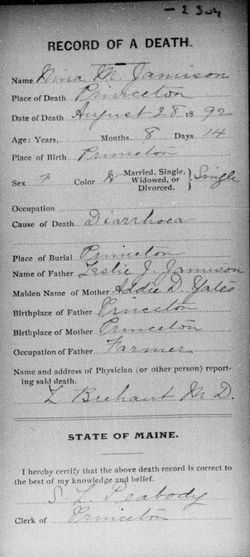 - 2304
RECORD OF A DEATH.
Name Nina M. Jamison
Place of Death Princeton
Date of Death August 28 1892
Age: Years, Months 8 Days 14
Place of Birth Princeton
Sex F Color W Married, Single, Widowed, or Divorced. Single
Occupation
Cause of Death Diarrhoea
Place of Burial Princeton
Name of Father Leslie J. Jamison
Maiden Name of Mother Addie D. Yates
Birthplace of Father Princeton
Birthplace of Mother Princeton
Occupation of Father Farmer
Name and address of Physician (or other person) report-
ing said death.
M D.
STATE OF MAINE.
I hereby certify that the above death record is correct to
the best of my knowledge and belief.
S. L. Peabody
Clerk of Princeton